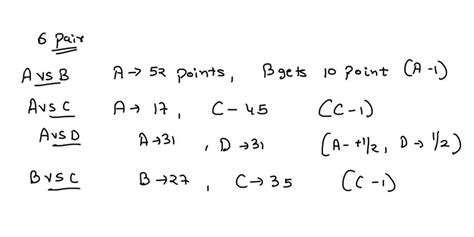 6 pair
A vs B A → 52 points, B gets 10 point (A -1)
A vs C A → 17, C - 45 (C -1)
A vs D A → 31, D → 31 (A - +1/2, D → 1/2)
B vs C B → 27, C → 35 (C -1)